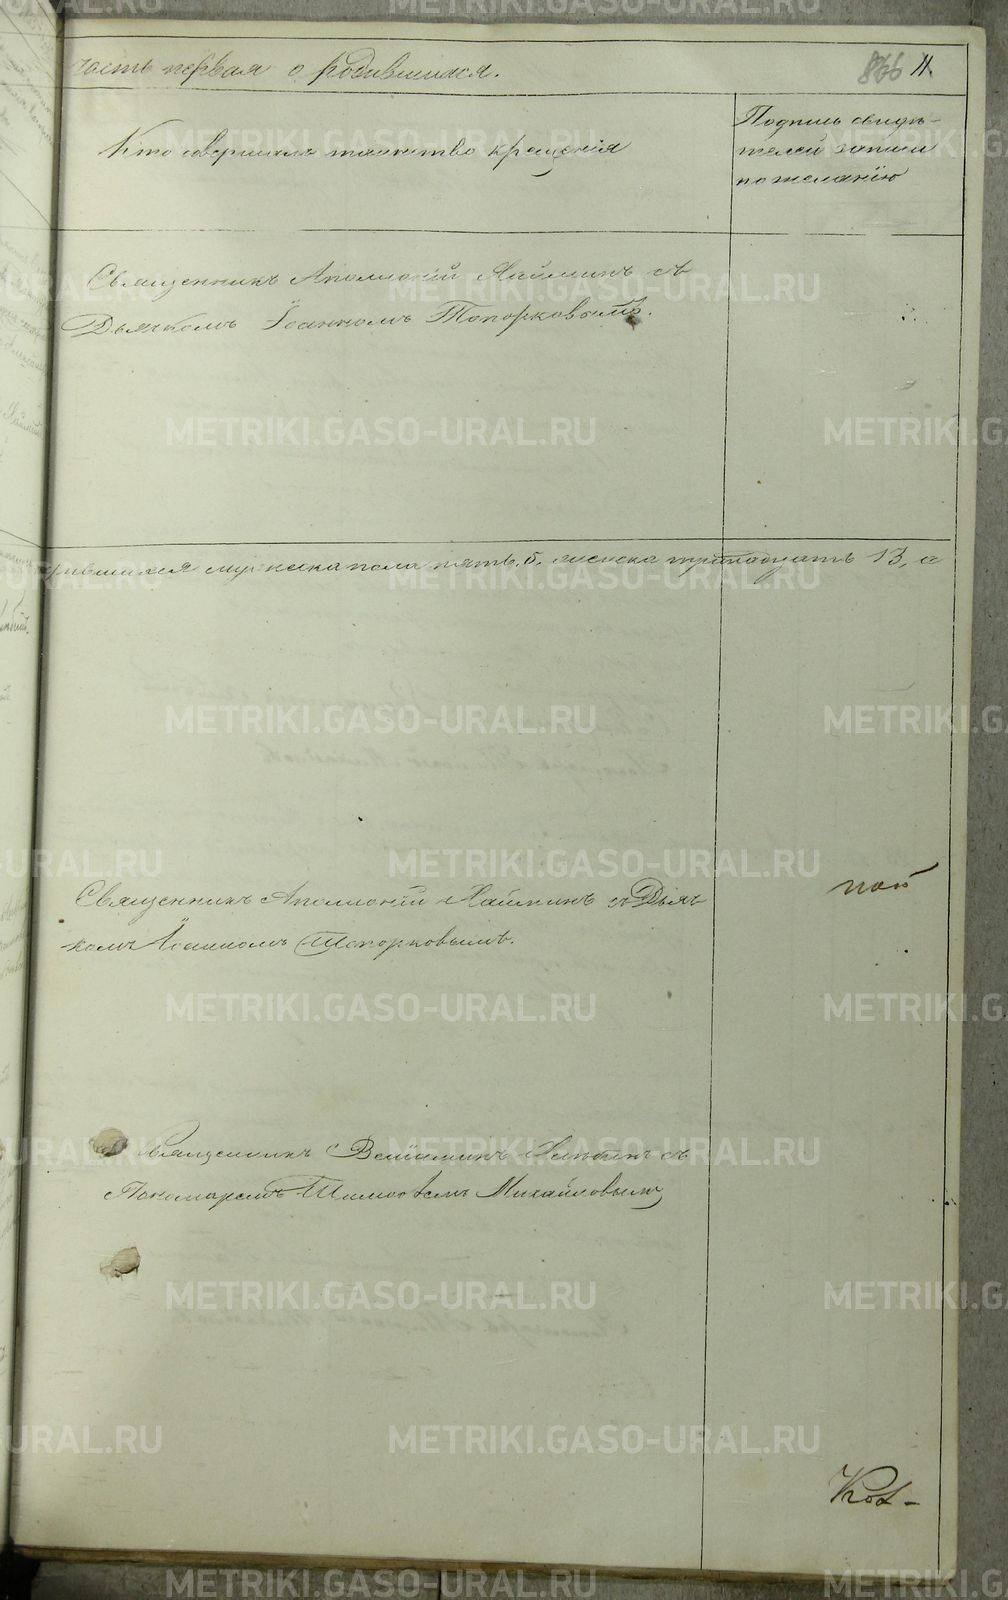 часть первая о родившихся.
866 11.
Кто совершалъ таинство крещенія
Подпись свидѣ-
телей записи
по желанію
Священникъ Аполлоній Хайминъ съ
Дьячкомъ Іоанномъ Топорковымъ.
мужеска пола пять, 5. женска тринадцать 13, а
Священникъ Аполлоній Хайминъ съ Дьяч-
комъ Іоанномъ Топорковымъ.
пой
Священникъ Веніаминъ съ
Пономаремъ Тимофеемъ Михайловымъ
METRIKI.GASO-URAL.RU